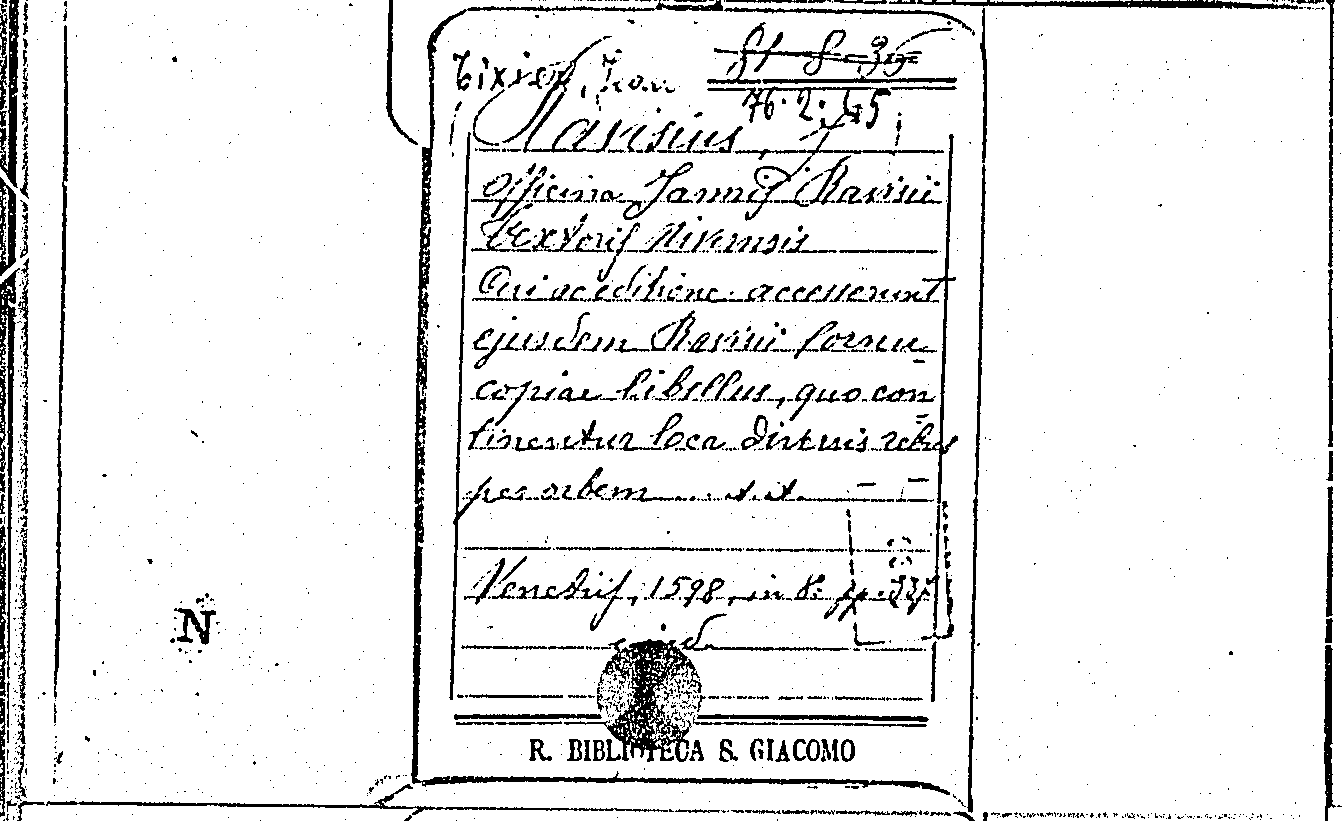 Tixier, Jean
81 8 39
76.2.45
Ravisius, J
Officina Jannis Ravisii
Textoris Nivernsis
Cui ac editione accesserunt
ejusdem Ravisii Cornu
copiae libellus, quo con
tinentur loca diversis rebus
per orbem
Venetiis, 1598, in 8:
N
R. BIBLIOTECA S. GIACOMO